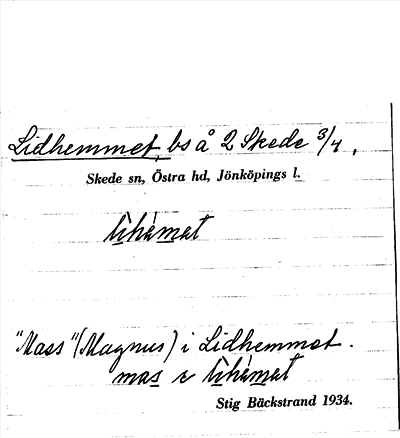 Lidhemmet, bs å 2 Skede 3/4,
Skede sn, Östra hd, Jönköpings l.
"Mass" (Magnus) i Lidhemmet.
Stig Bäckstrand 1934.